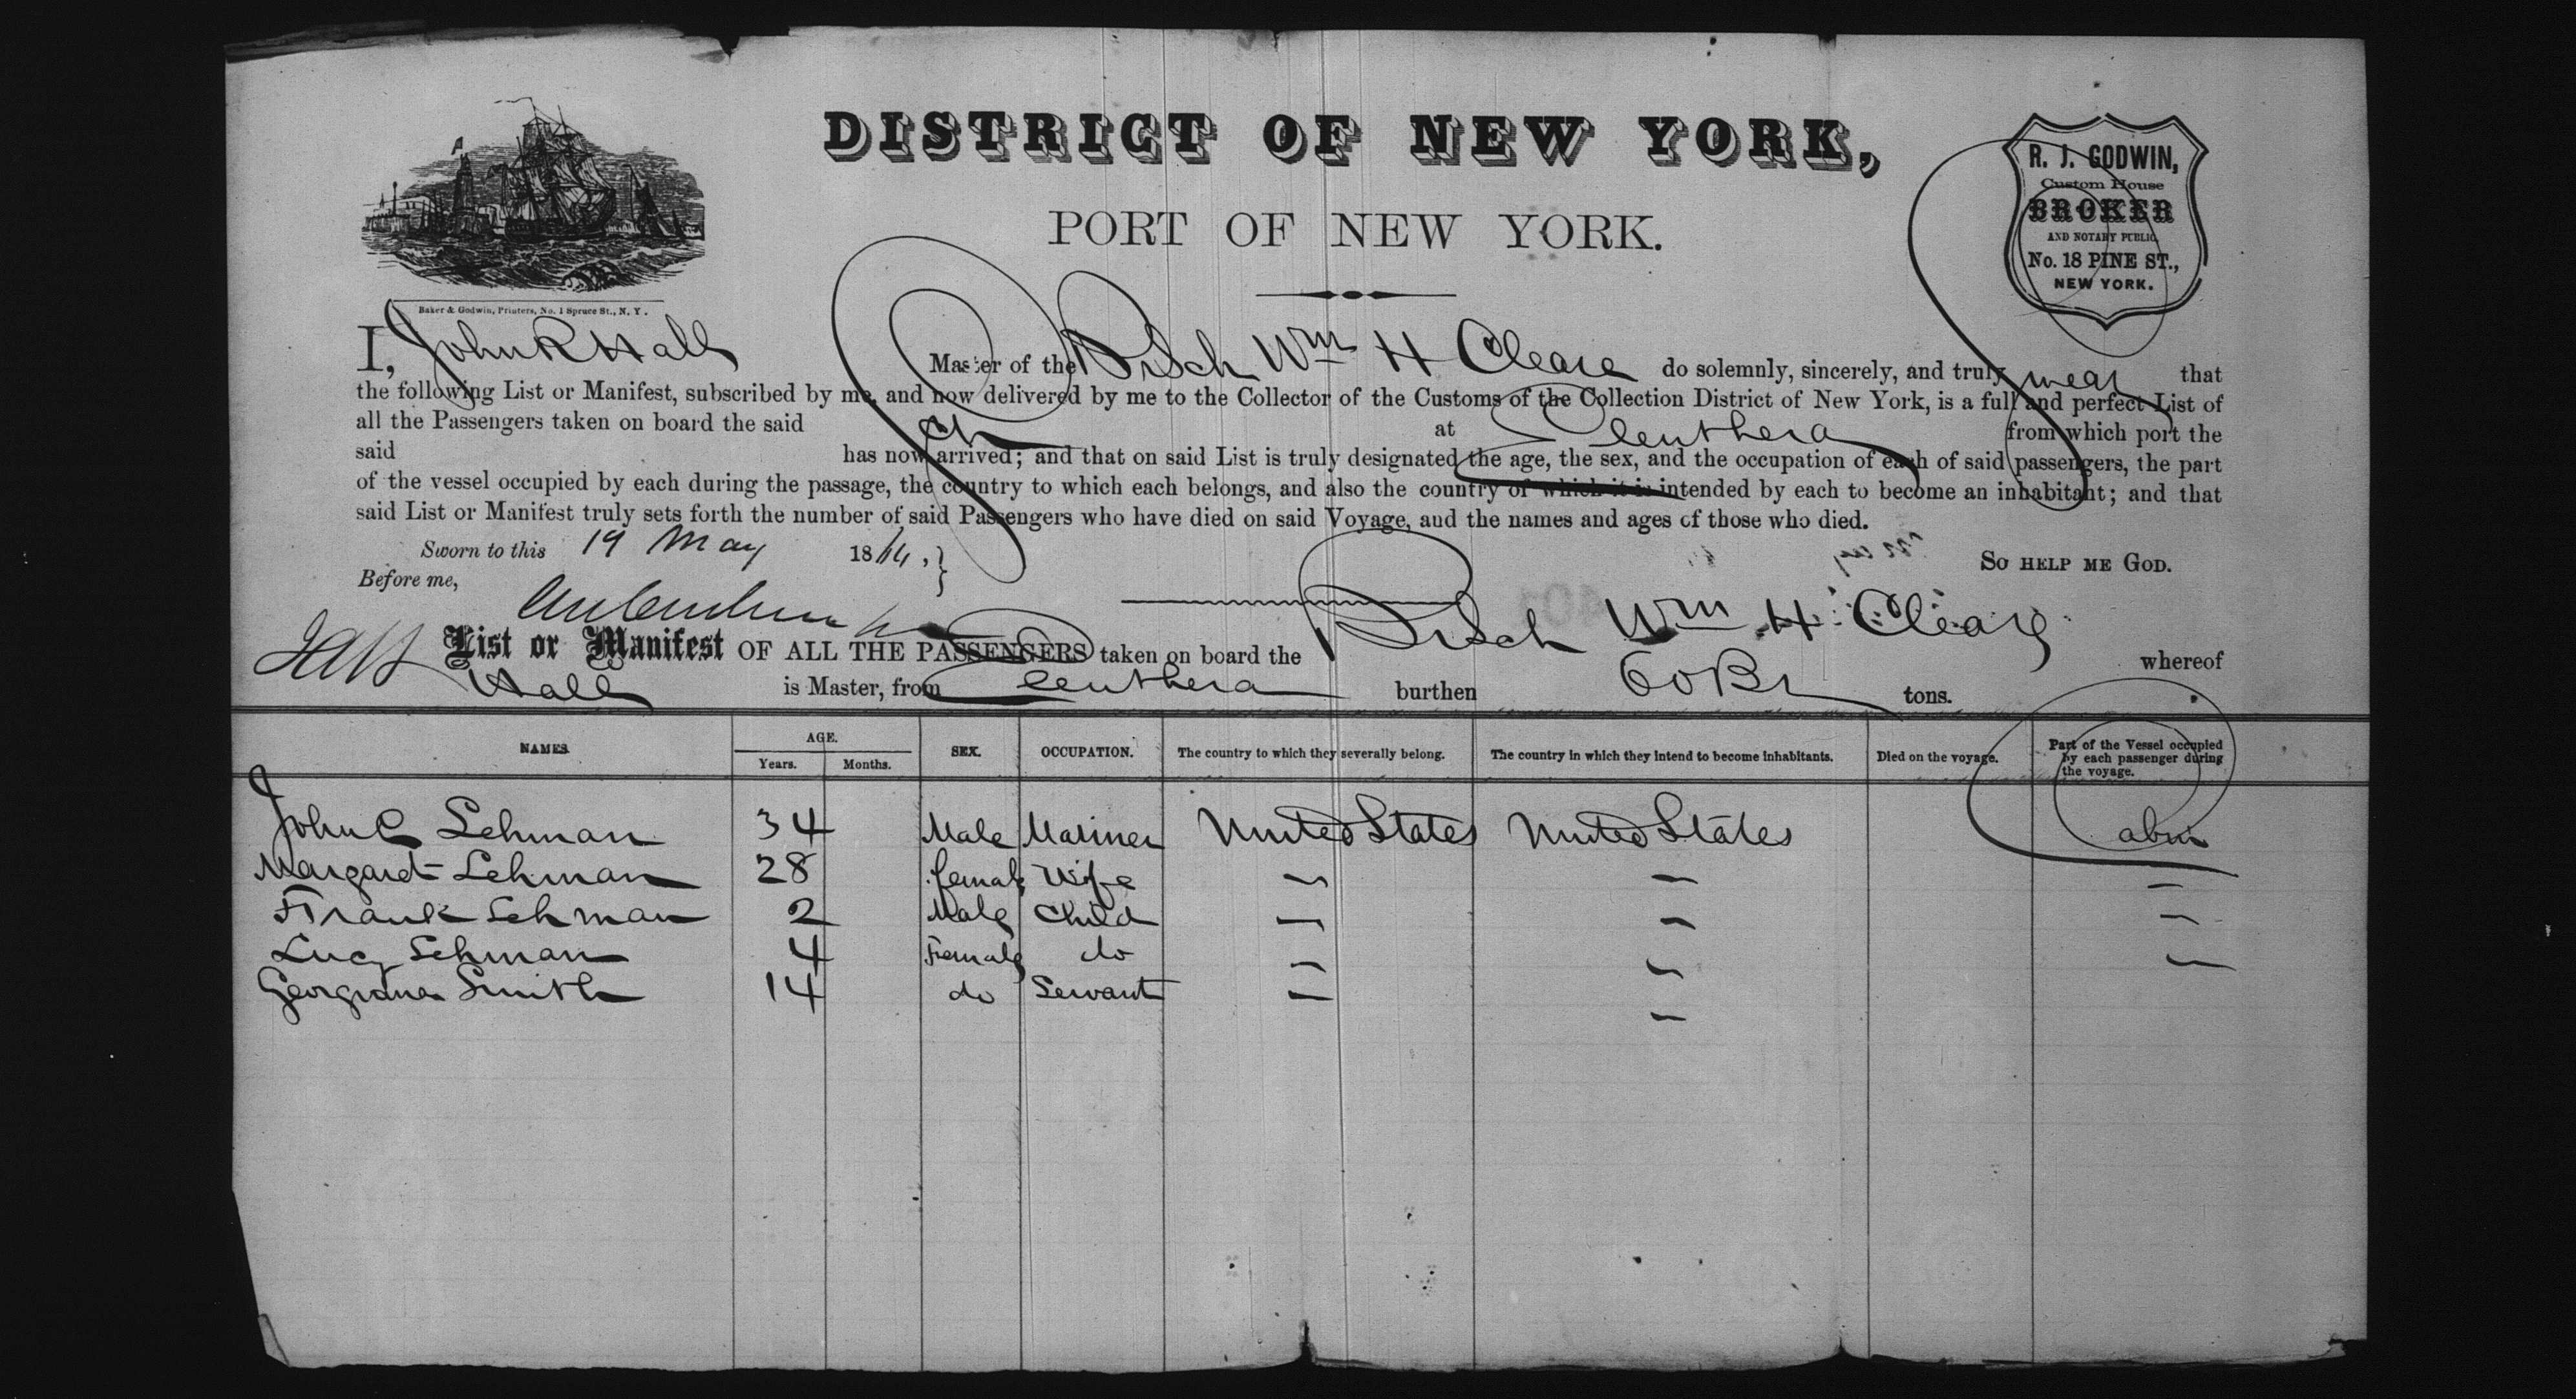 DISTRICT OF NEW YORK,
PORT OF NEW YORK.
R. J. GODWIN,
Custom House
BROKER
AND NOTARY PUBLIC,
No. 18 PINE ST.,
NEW YORK.
Baker & Godwin, Printers, No. 1 Spruce St., N. Y.
I, John R Hall Master of the Br Sch Wm H Cleare do solemnly, sincerely, and truly swear that
the following List or Manifest, subscribed by me, and now delivered by me to the Collector of the Customs of the Collection District of New York, is a full and perfect List of
all the Passengers taken on board the said Sch at Eleuthera from which port the
said has now arrived; and that on said List is truly designated the age, the sex, and the occupation of each of said passengers, the part
of the vessel occupied by each during the passage, the country to which each belongs, and also the country of which it is intended by each to become an inhabitant; and that
said List or Manifest truly sets forth the number of said Passengers who have died on said Voyage, and the names and ages of those who died.
Sworn to this 19 May 18
So help me God.
Before me,
List or Manifest OF ALL THE PASSENGERS taken on board the Br Sch Wm H Cleare whereof
Hall is Master, from Eleuthera burthen 60 Br tons.
NAMES. AGE. Years. Months. SEX. OCCUPATION. The country to which they severally belong. The country in which they intend to become inhabitants. Died on the voyage. Part of the Vessel occupied by each passenger during the voyage.
John C Lehman 34 Male Mariner United States United States Cabin
Margaret Lehman 28 female Wife — — —
Frank Lehman 2 Male Child — — —
Lucy Lehman 4 Female do — — —
Georgiana Smith 14 do Servant — —